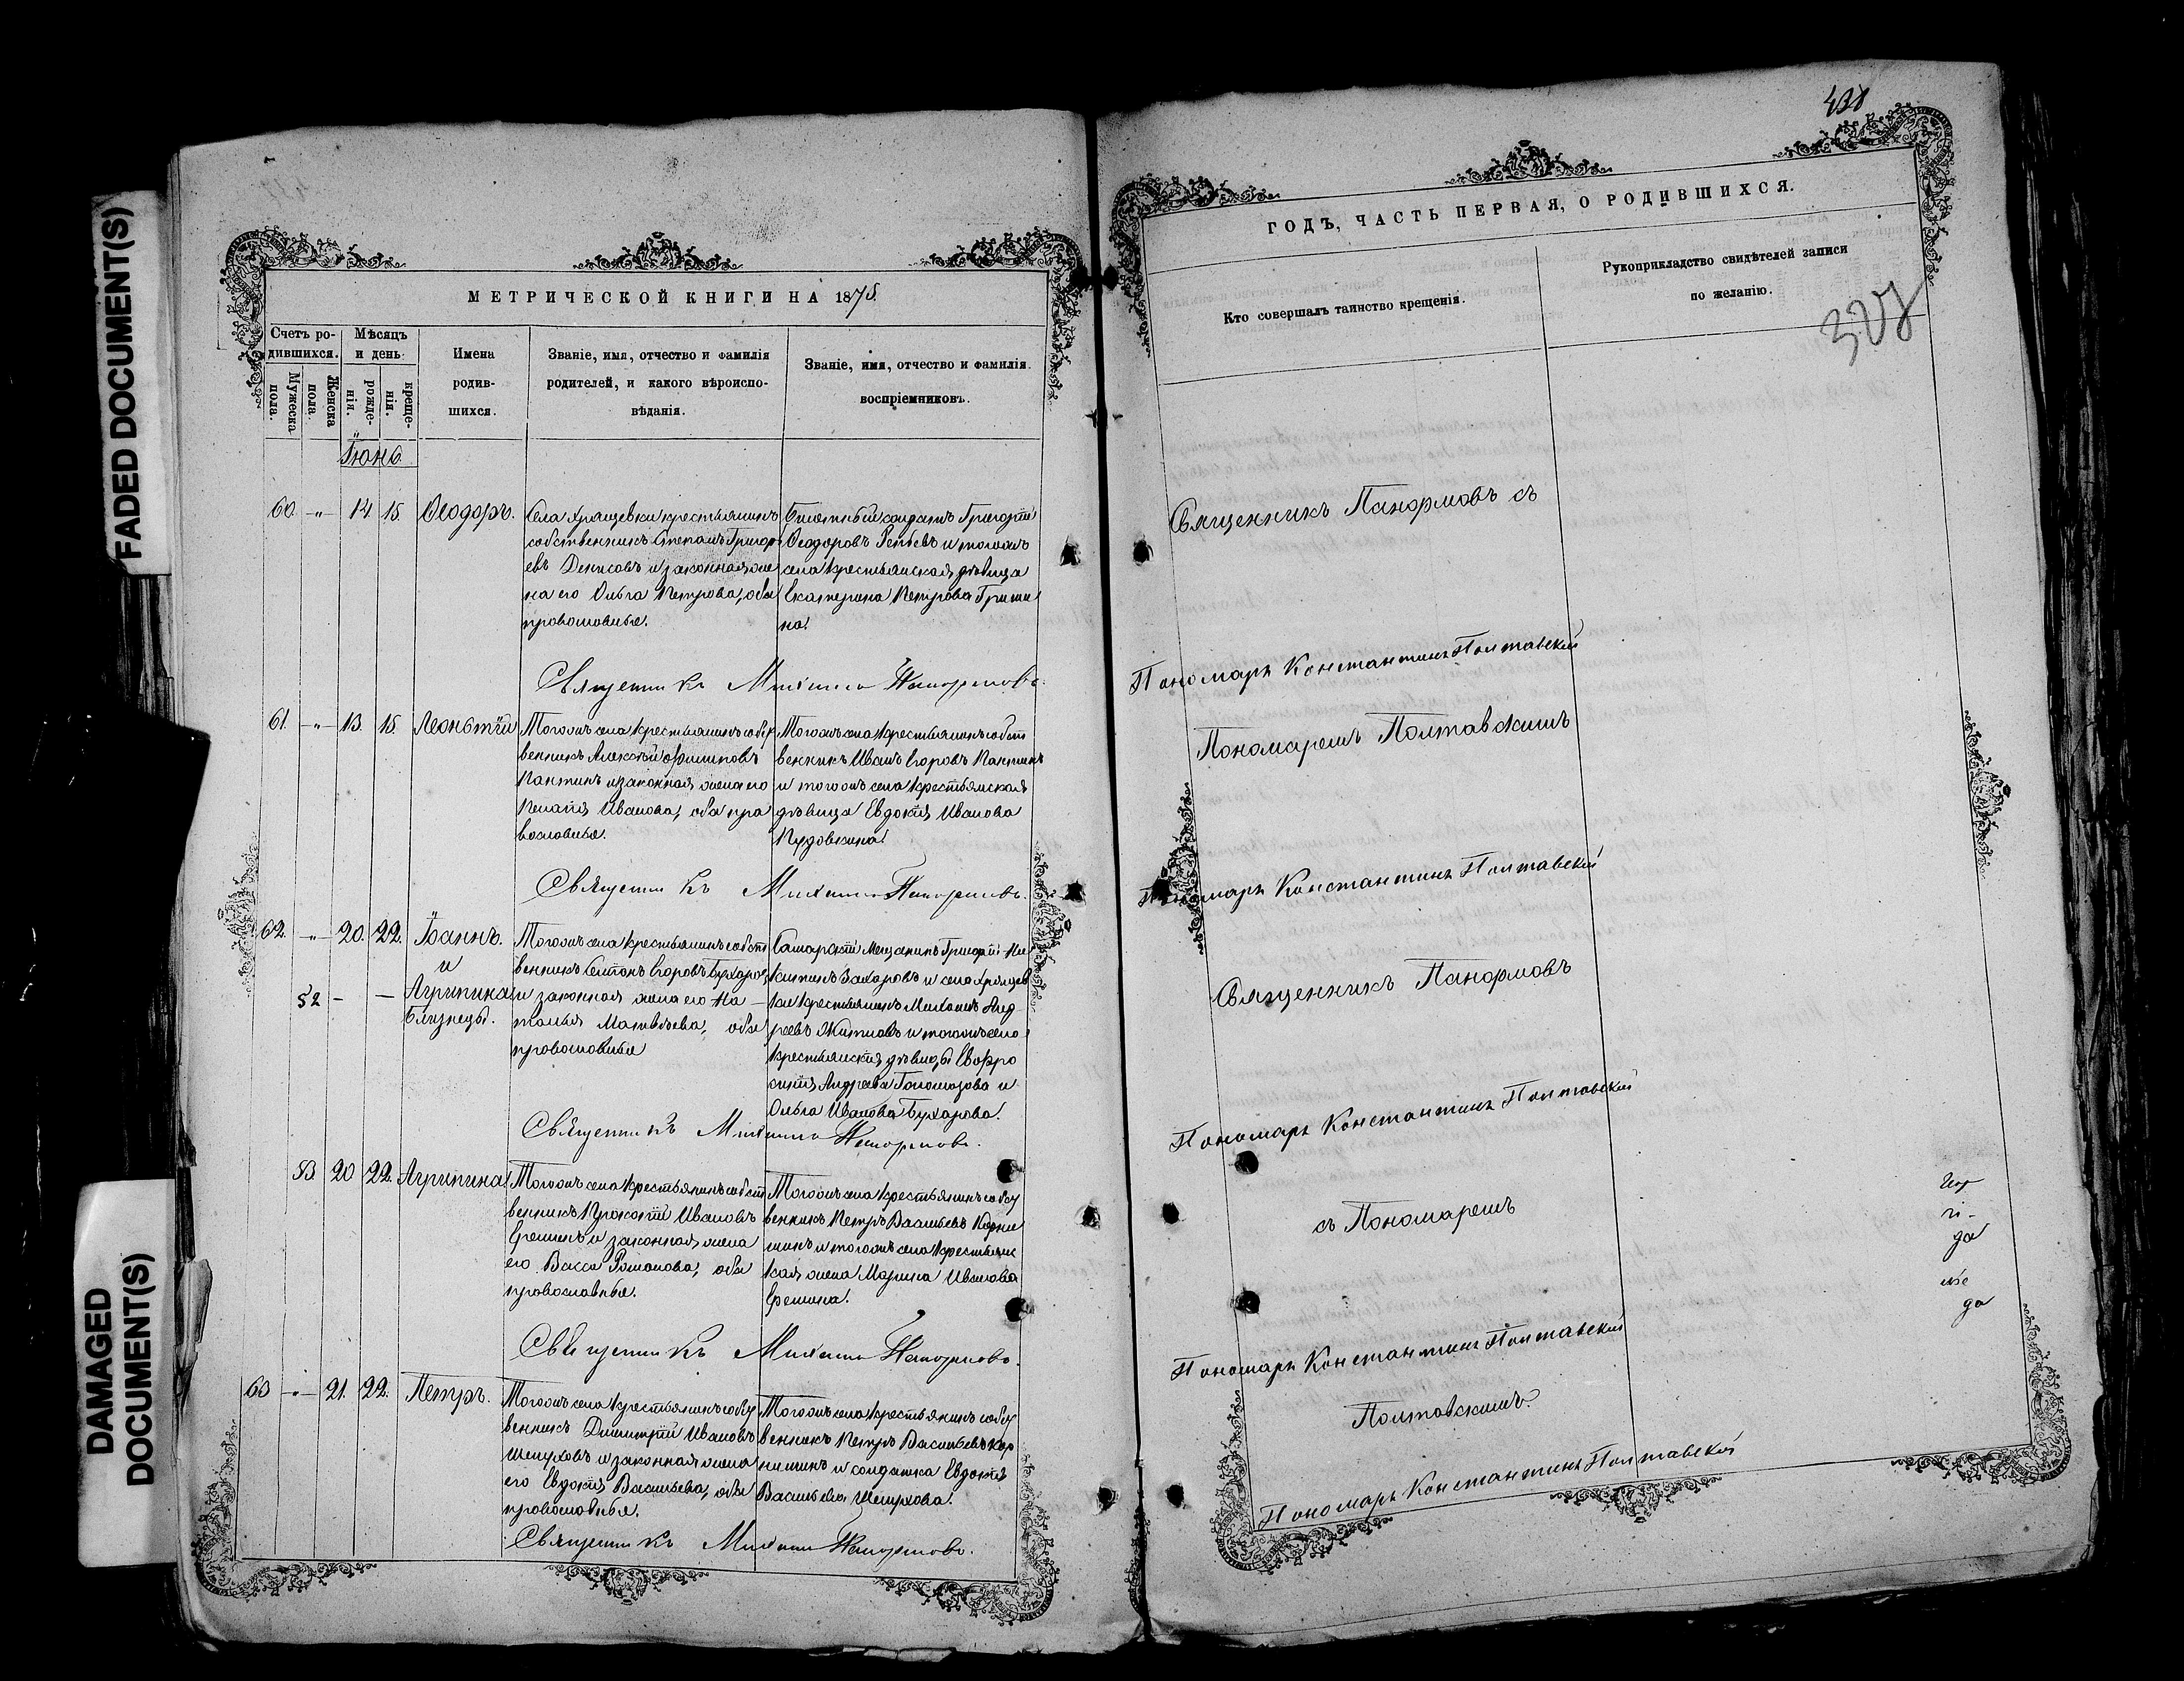 FADED DOCUMENT(S)
DAMAGED
DOCUMENT(S)
МЕТРИЧЕСКОЙ КНИГИ НА 1875
Счетъ ро-
дившихся.
Мужеска
пола.
Женска
пола.
Мѣсяцъ
и день
рожде-
нія.
креще-
нія.
Имена
родив-
шихся.
Званіе, имя, отчество и фамилія
родителей, и какого вѣроиспо-
вѣданія.
Званіе, имя, отчество и фамилія
воспріемниковъ.
Іюнь
60 -"- 14 15. Ѳеодоръ.
Села Хрящевки крестьянинъ
собственникъ Стефанъ Григорь
евъ Денисовъ и законная же
на его Ольга Петрова, оба
православные.
Билетный солдатъ Григорій
Ѳеодоровъ и тогожъ
села крестьянская дѣвица
Екатерина Петрова Гриши
на.
Священникъ Михаилъ Панормовъ.
61. -"- 13. 15. Леонтій
Тогожъ села крестьянинъ собст
венникъ Алексѣй Филиповъ
Пантинъ и законная жена его
Пелагія Иванова, оба пра
вославные.
Тогожъ села крестьянинъ собст
венникъ Иванъ Егоровъ Пантинъ
и тогожъ села крестьянская
дѣвица Евдокія Иванова
Пудовкина.
Священникъ Михаилъ Панормовъ.
62. -"- 20. 22. Іоаннъ.
и
52 - - Агрипина
близнецы.
Тогожъ села крестьянинъ собст
венникъ Егоровъ Бухаровъ
и законная жена его На
талья Матвѣева, оба
православные
Самарскій мещанинъ Григорій Ни
китинъ Захаровъ и села Хрящев
ки крестьянинъ Михаилъ Анд
реевъ Житловъ и тогожъ села
крестьянскія дѣвицы Евфро
синія Андреева и
Ольга Иванова Бухарова.
Священникъ Михаилъ Панормовъ.
53. 20 22. Агрипина
Тогожъ села крестьянинъ собст
венникъ Прокопій Ивановъ
Еремин и законная жена
его Васса Романова, оба
православные.
Тогожъ села крестьянинъ собст
венникъ Петръ Васильевъ Корни
шинъ и тогожъ села крестьянс
кая жена Марина Иванова
Еремина.
Священникъ Михаилъ Панормовъ.
63 -"- 21. 22. Петръ.
Тогожъ села крестьянинъ собст
венникъ Димитрій Ивановъ
Шелуховъ и законная жена
его Евдокія Васильева, оба
православные.
Тогожъ села крестьянинъ собст
венникъ Петръ Васильевъ Кор
нишинъ и солдатка Евдокія
Васильева Шелухова.
Священникъ Михаилъ Панормовъ.
438
ГОДЪ, ЧАСТЬ ПЕРВАЯ, О РОДИВШИХСЯ.
Кто совершалъ таинство крещенія.
Рукоприкладство свидѣтелей записи
по желанію.
Священникъ Панормовъ съ
Пономарь Константинъ Полтавский
Пономаремъ Полтавскимъ
Пономарь Константинъ Полтавский
Священникъ Панормовъ
Пономарь Константинъ Полтавский
съ Пономаремъ
Пономарь Константинъ Полтавский
Полтавскимъ.
Пономарь Константинъ Полтавский